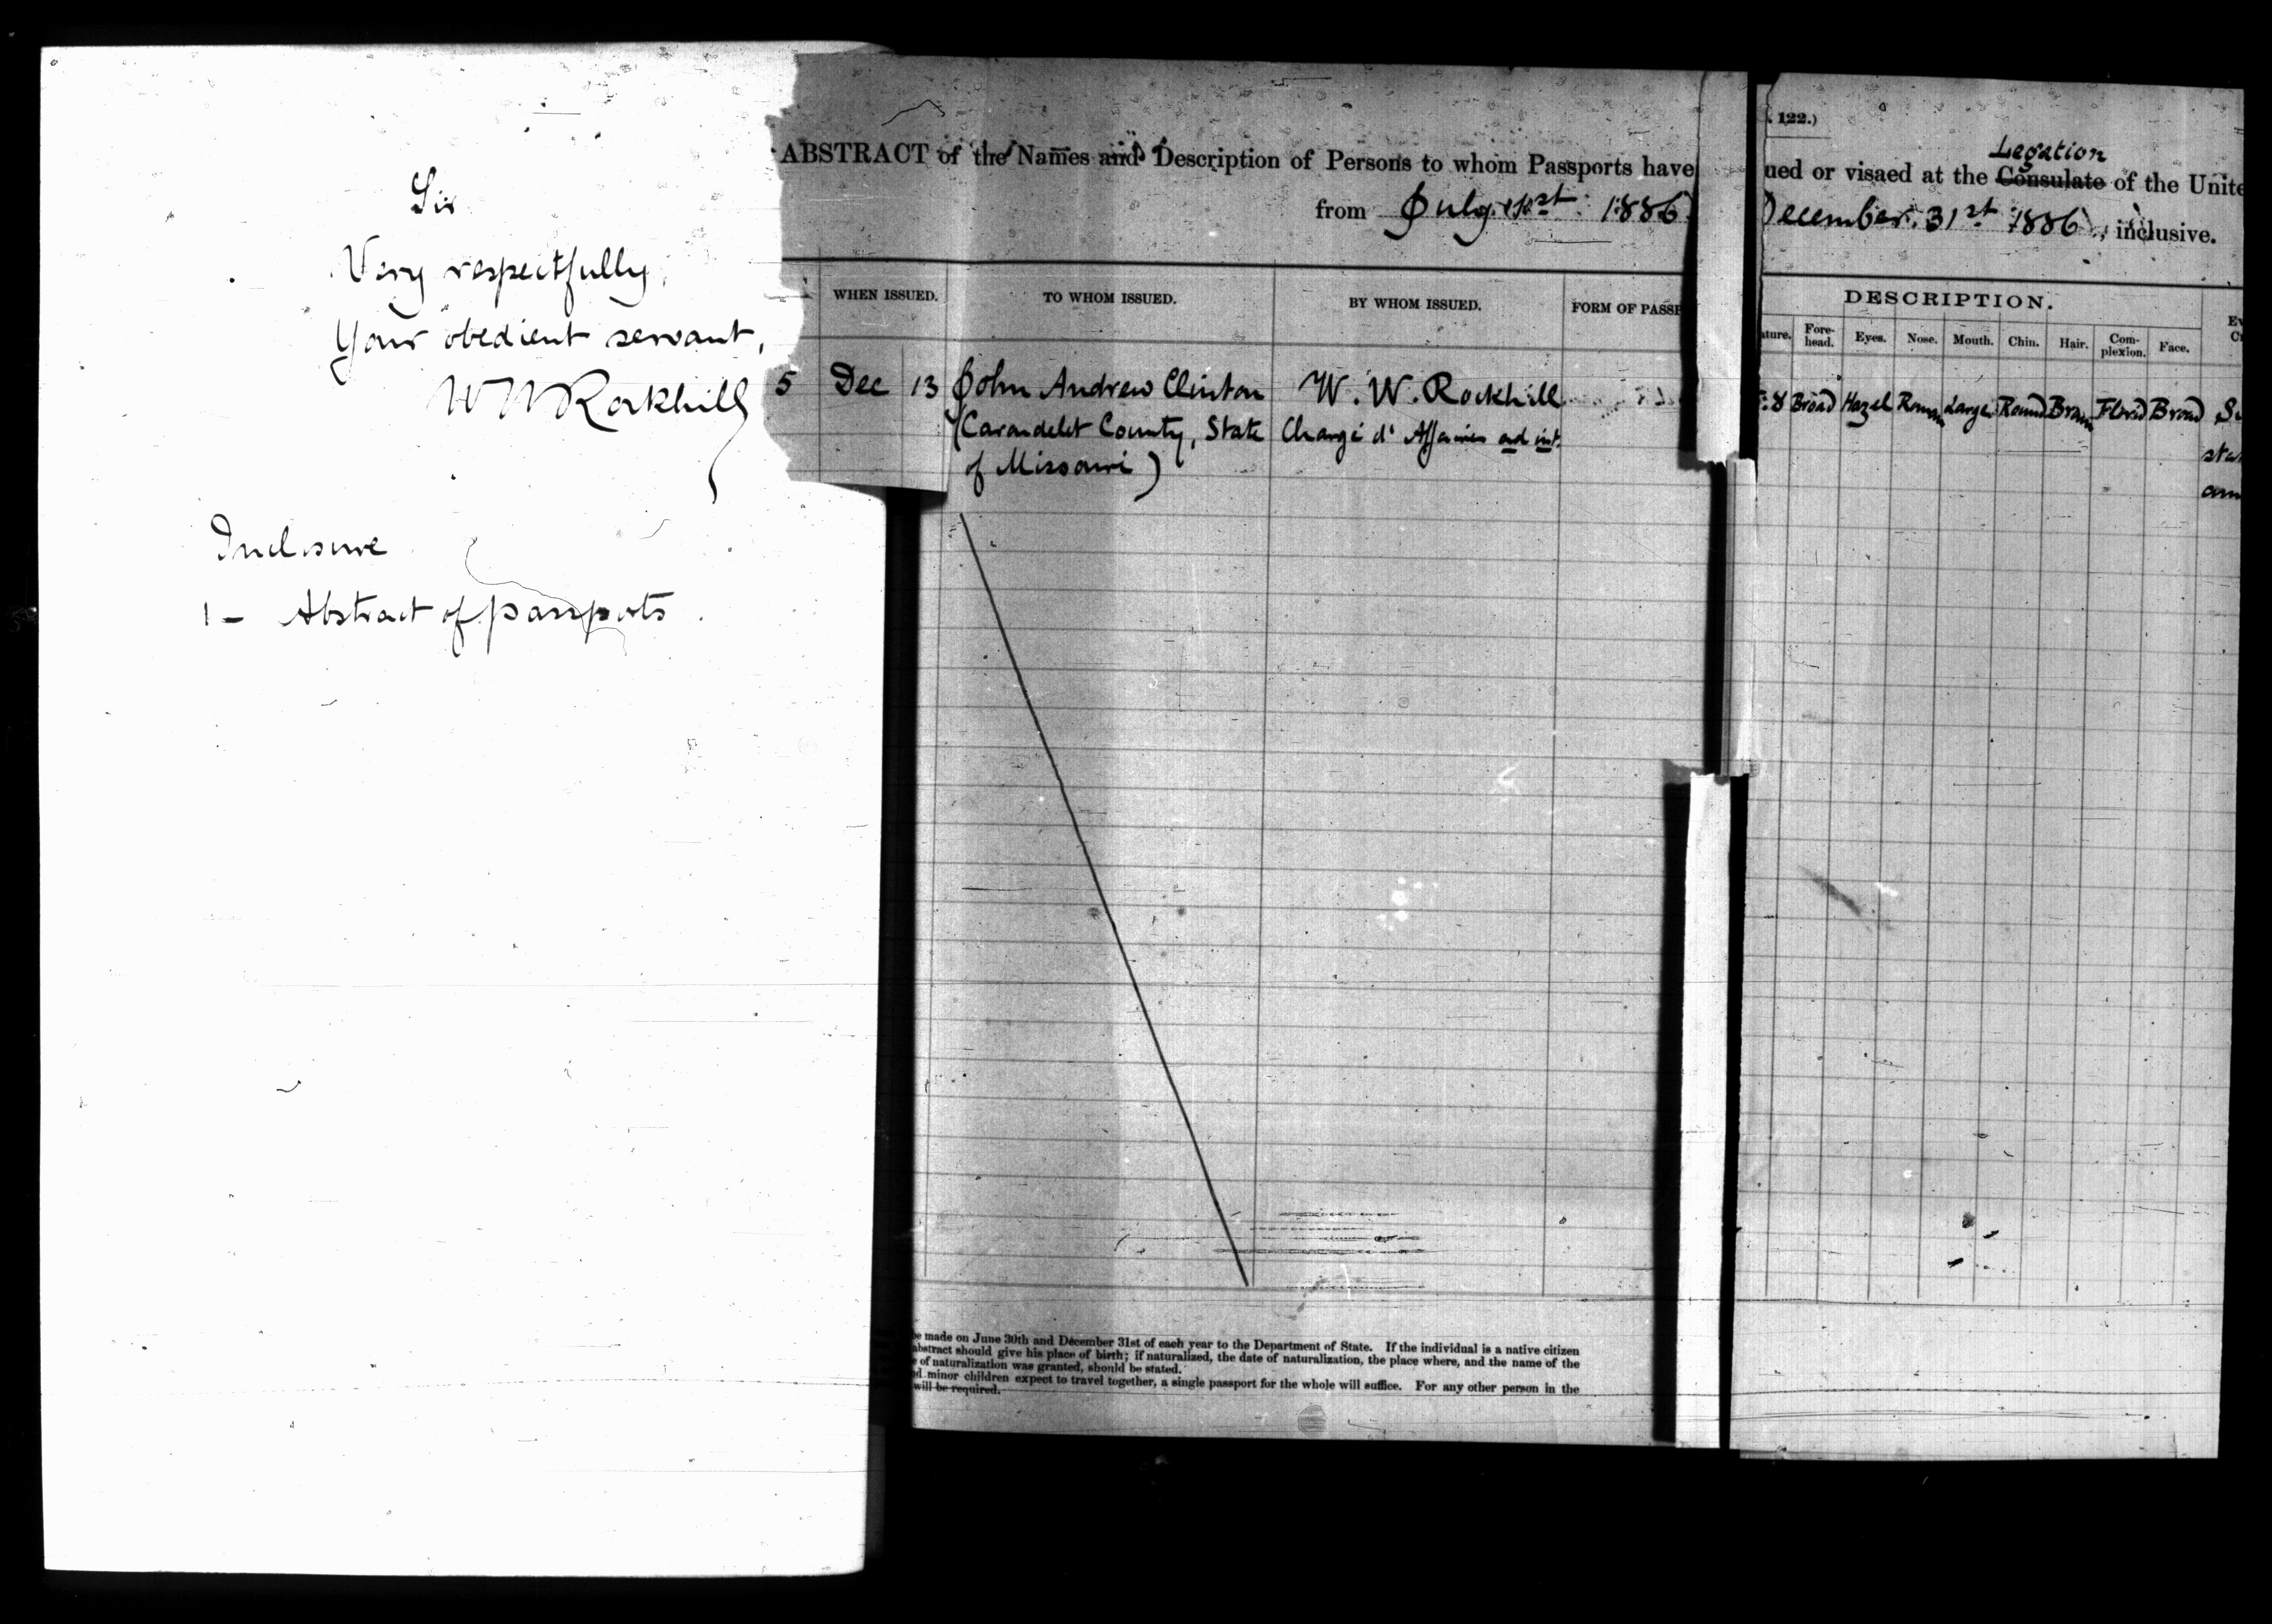 Sir
Very respectfully,
Your obedient servant,
W W Rockhill
Inclosure
1 - Abstract of passports.
ABSTRACT of the Names and Description of Persons to whom Passports have
from July 1st 1886
WHEN ISSUED.
TO WHOM ISSUED.
BY WHOM ISSUED.
FORM OF PASSP
5 Dec 13 John Andrew Clinton W. W. Rockhill
(Carondelet County, State Chargé d' Affaires ad int.
of Missouri)
be made on June 30th and December 31st of each year to the Department of State. If the individual is a native citizen
abstract should give his place of birth; if naturalized, the date of naturalization, the place where, and the name of the
e of naturalization was granted, should be stated.
nd minor children expect to travel together, a single passport for the whole will suffice. For any other person in the
will be required.
. 122.)
Legation
ued or visaed at the Consulate of the Unite
December 31st 1886, inclusive.
DESCRIPTION.
ature. Fore-head. Eyes. Nose. Mouth. Chin. Hair. Com-plexion. Face.
8 Broad Hazel Roman Large Round Brown Florid Broad